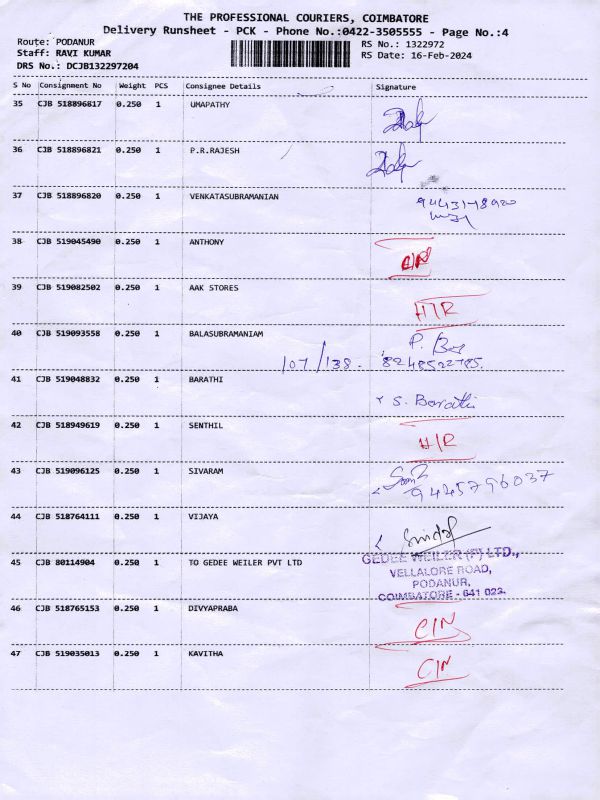 THE PROFESSIONAL COURIERS, COIMBATORE
Delivery Runsheet - PCK - Phone No.:0422-3505555 - Page No.:4
Route: PODANUR
RS No.: 1322972
Staff: RAVI KUMAR
RS Date: 16-Feb-2024
DRS No.: DCJB132297204
S No Consignment No Weight PCS Consignee Details Signature
35 CJB 518896817 0.250 1 UMAPATHY
36 CJB 518896821 0.250 1 P.R.RAJESH
37 CJB 518896820 0.250 1 VENKATASUBRAMANIAN
38 CJB 519045490 0.250 1 ANTHONY
39 CJB 519082502 0.250 1 AAK STORES
H/R
40 CJB 519093558 0.250 1 BALASUBRAMANIAM
107/138. 8248522785.
41 CJB 519048832 0.250 1 BARATHI
S. Barathi
42 CJB 518949619 0.250 1 SENTHIL
H/R
43 CJB 519096125 0.250 1 SIVARAM
9445796037
44 CJB 518764111 0.250 1 VIJAYA
45 CJB 80114904 0.250 1 TO GEDEE WEILER PVT LTD
GEDEE WEILER (P) LTD.,
VELLALORE ROAD,
PODANUR,
COIMBATORE - 641 023.
46 CJB 518765153 0.250 1 DIVYAPRABA
C/N
47 CJB 519035013 0.250 1 KAVITHA
C/N